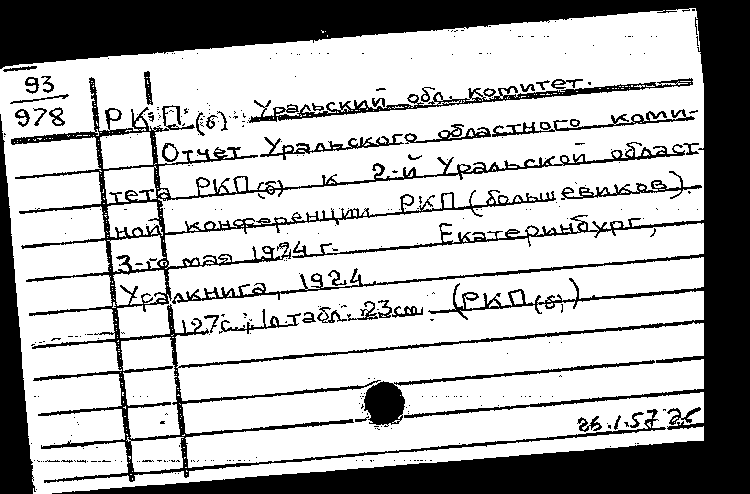 93
978
РКП(б) Уральский обл. комитет.
Отчет Уральского областного коми-
тета РКП(б) к 2-й Уральской област-
ной конференции РКП (большевиков).
3-го мая 1924 г. Екатеринбург,
Уралкнига, 1924.
127с.; 1л.табл. 23см. (РКП(б)).
26.1.57